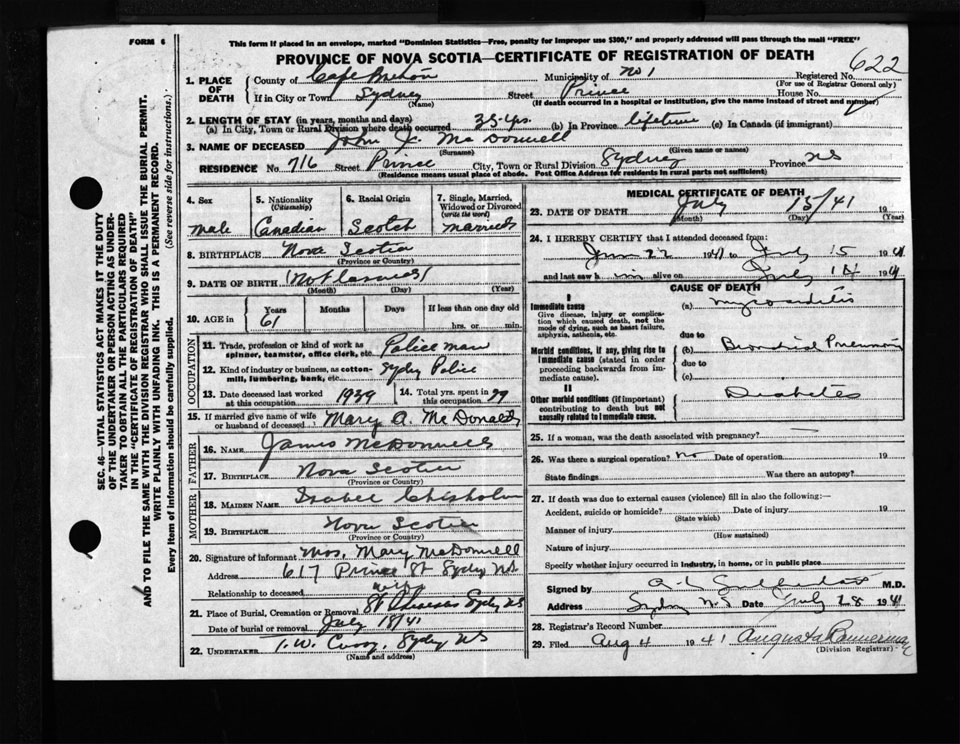 FORM 6
This form if placed in an envelope, marked "Dominion Statistics—Free, penalty for improper use $300," and properly addressed will pass through the mail "FREE"
PROVINCE OF NOVA SCOTIA—CERTIFICATE OF REGISTRATION OF DEATH
622
1. PLACE OF DEATH
County of Cape Breton Municipality of No 1 Registered No.
(For use of Registrar General only)
If in City or Town Sydney Street Prince House No.
(Name) (If death occurred in a hospital or institution, give the name instead of street and number)
2. LENGTH OF STAY (in years, months and days)
(a) In City, Town or Rural Division where death occurred 35 yrs. (b) In Province lifetime (c) In Canada (if immigrant)
3. NAME OF DECEASED John J. McDonnell
(Surname) (Given name or names)
RESIDENCE No. 716 Street Prince City, Town or Rural Division Sydney Province NS
(Residence means usual place of abode. Post Office Address for residents in rural parts not sufficient)
4. Sex
male
5. Nationality
(Citizenship)
Canadian
6. Racial Origin
Scotch
7. Single, Married, Widowed or Divorced
(write the word)
married
8. BIRTHPLACE Nova Scotia
(Province or Country)
9. DATE OF BIRTH (Not known)
(Month) (Day) (Year)
10. AGE in
Years Months Days If less than one day
61 hrs. or min.
OCCUPATION
11. Trade, profession or kind of work as spinner, teamster, office clerk, etc. Policeman
12. Kind of industry or business, as cotton-mill, lumbering, bank, etc. Sydney Police
13. Date deceased last worked at this occupation 1939
14. Total yrs. spent in this occupation 29
15. If married give name of wife or husband of deceased Mary A. McDonald
FATHER
16. NAME James McDonnell
17. BIRTHPLACE Nova Scotia
(Province or Country)
MOTHER
18. MAIDEN NAME Isabel Chisholm
19. BIRTHPLACE Nova Scotia
(Province or Country)
20. Signature of Informant Mrs. Mary McDonnell
Address 617 Prince St Sydney NS
Relationship to deceased wife
21. Place of Burial, Cremation or Removal Sydney NS
Date of burial or removal July 18/41
22. UNDERTAKER Sydney NS
(Name and address)
MEDICAL CERTIFICATE OF DEATH
23. DATE OF DEATH July 15/41 19
(Month) (Day) (Year)
24. I HEREBY CERTIFY that I attended deceased from:
June 22 1941 to July 15 1941
and last saw h im alive on July 14 1941
CAUSE OF DEATH
I
Immediate cause
Give disease, injury or complication which caused death, not the mode of dying, such as heart failure, asphyxia, asthenia, etc.
(a) myocarditis
due to
Morbid conditions, if any, giving rise to immediate cause (stated in order proceeding backwards from immediate cause).
(b) Bronchial Pneumonia
due to
(c)
II
Other morbid conditions (if important) contributing to death but not causally related to immediate cause.
Diabetes
25. If a woman, was the death associated with pregnancy?
26. Was there a surgical operation? no Date of operation 19
State findings Was there an autopsy?
27. If death was due to external causes (violence) fill in also the following:—
Accident, suicide or homicide? Date of injury 19
(State which)
Manner of injury
(How sustained)
Nature of injury
Specify whether injury occurred in industry, in home, or in public place
Signed by M.D.
Address Sydney N.S. Date July 28 1941
28. Registrar's Record Number
29. Filed Aug 4 1941 Augusta
(Division Registrar)
SEC. 46—VITAL STATISTICS ACT MAKES IT THE DUTY
OF THE UNDERTAKER OR PERSON ACTING AS UNDER-
TAKER TO OBTAIN ALL THE PARTICULARS REQUIRED
IN THE "CERTIFICATE OF REGISTRATION OF DEATH"
AND TO FILE THE SAME WITH THE DIVISION REGISTRAR WHO SHALL ISSUE THE BURIAL PERMIT.
WRITE PLAINLY WITH UNFADING INK. THIS IS A PERMANENT RECORD.
Every item of information should be carefully supplied. (See reverse side for instructions.)